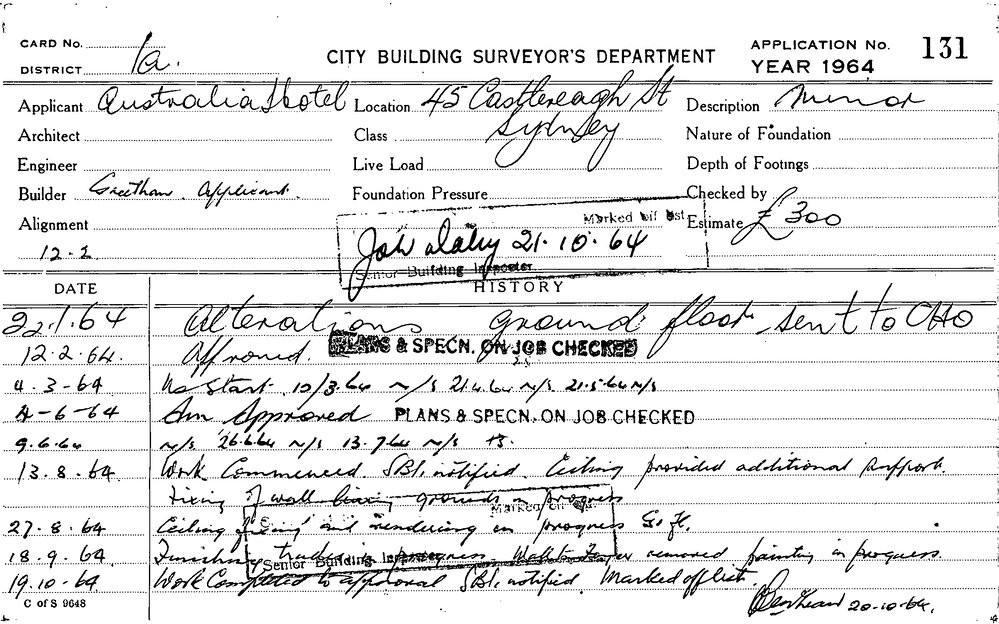 CARD No.
DISTRICT 1a.
CITY BUILDING SURVEYOR'S DEPARTMENT
APPLICATION No. 131
YEAR 1964
Applicant Australia Hotel Location 45 Castlereagh St Description Minor
Architect Class Sydney Nature of Foundation
Engineer Live Load Depth of Footings
Builder Applicant. Foundation Pressure Checked by
Alignment Marked off list Estimate £300
12-2 21-10-64
Senior Building Inspector
DATE HISTORY
22.1.64 Alterations ground floor sent to CHO
12.2.64. Approved. PLANS & SPECN. ON JOB CHECKED
4.3-64 No Start 10/3.64 n/s 21.4.64 n/s 21.5.64 n/s
4-6-64 Am Approved PLANS & SPECN. ON JOB CHECKED
9.6.64 n/s 26.6.64 n/s 13.7.64 n/s
13.8.64 Work Commenced. SBI. notified. Ceiling provided additional support.
Fixing of wall grounds in progress
Marked off
27.8.64 Ceiling fixing and rendering in progress G. Fl.
18.9.64 Finishing trades in progress. removed painting in progress.
Senior Building Inspector
19.10.64 Work Completed to approval SBI. notified Marked off list.
C of S 9648
20-10-64.